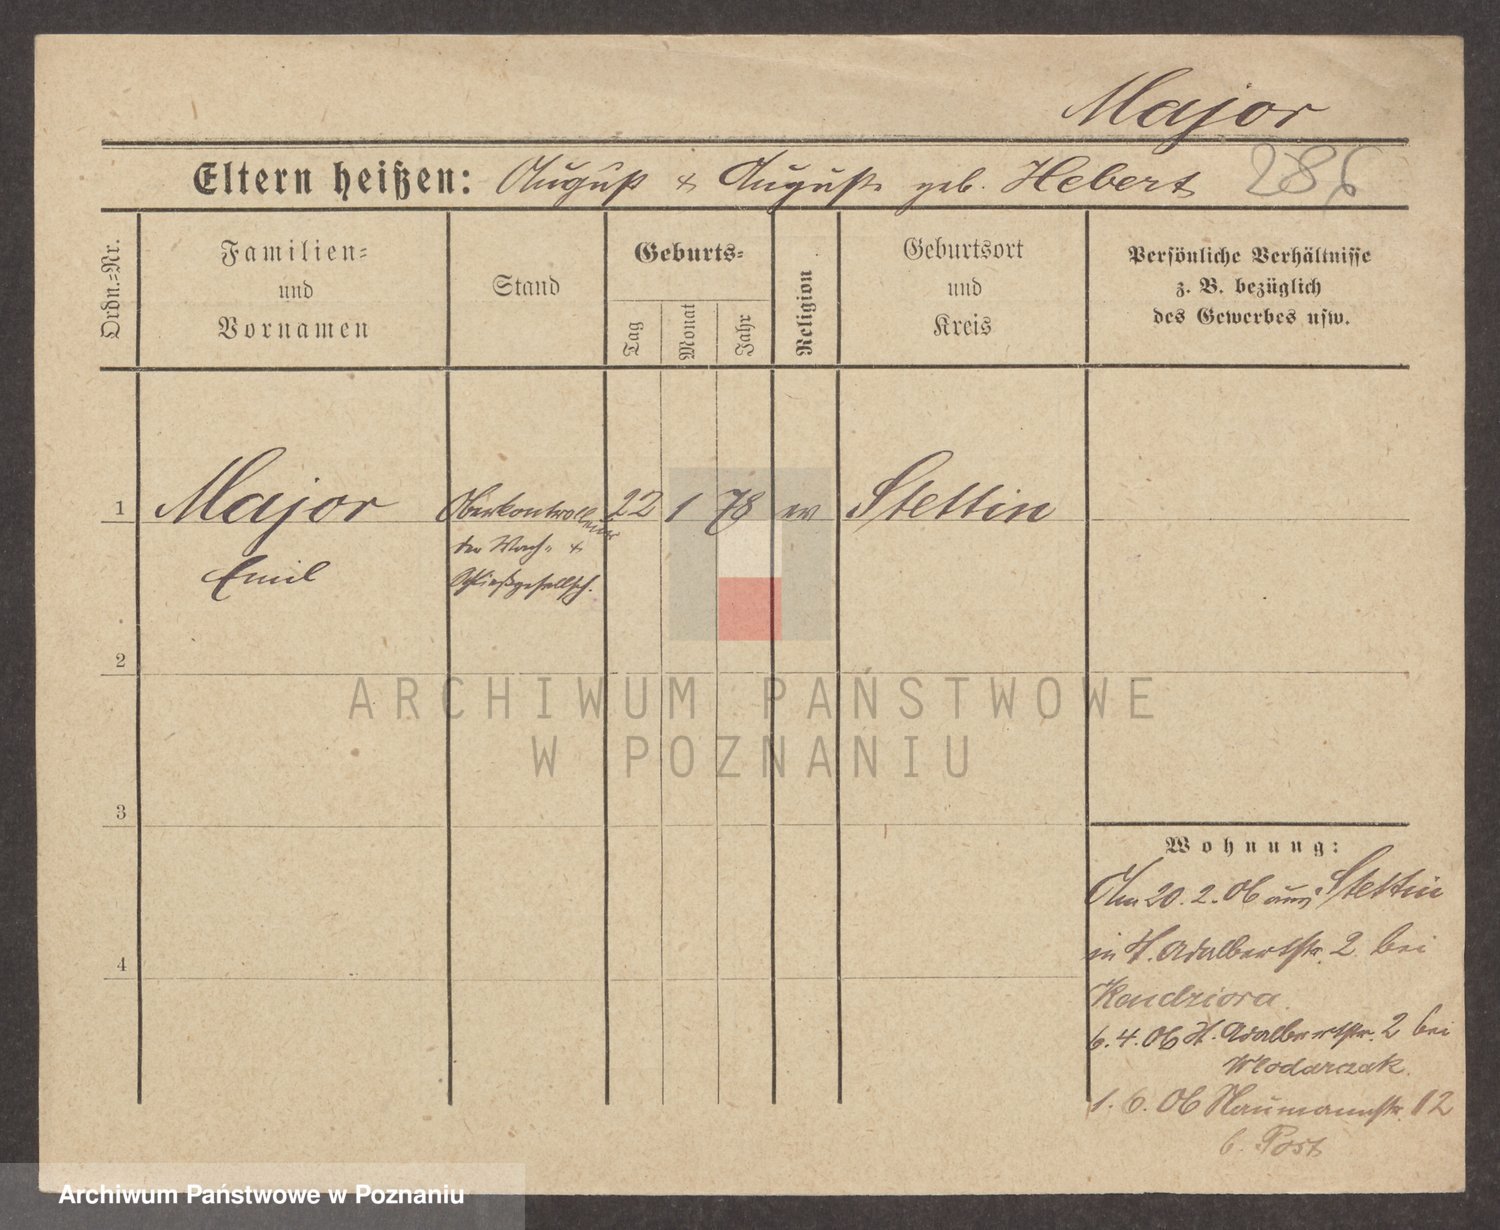 Major
Eltern heißen: August & Auguste geb. Hebert 286
Ordn.-Nr.
Familien-
und
Vornamen
Stand
Geburts-
Tag
Monat
Jahr
Religion
Geburtsort
und
Kreis
Persönliche Verhältnisse
z. B. bezüglich
des Gewerbes usw.
1 Major Oberkontrolleur 22 1 78 ev Stettin
der Wach- &
Emil Schließgesellsch.
2
ARCHIWUM PAŃSTWOWE
W POZNANIU
3
Wohnung:
Am 20. 2. 06 aus Stettin
in H. Adalbertstr. 2 bei
4
Kendziora.
6. 4. 06 H. Adalbertstr. 2 bei
Wlodarczak.
1. 6. 06 Naumannstr. 12
b. Post
Archiwum Państwowe w Poznaniu